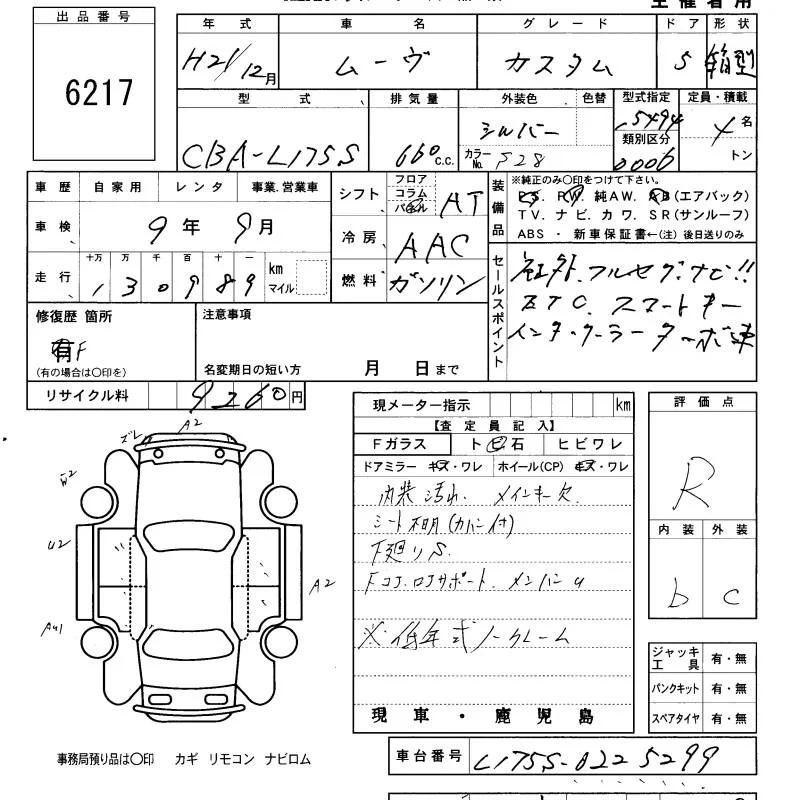 主催者用
出品番号
6217
年式 車名 グレード ドア 形状
H21/12月 ムーヴ カスタム 5 箱型
型式 排気量 外装色 色替 型式指定 定員・積載
CBA-L175S 660c.c. シルバー 15494 4名
カラーNo. S28 類別区分 0006 トン
車歴 自家用 レンタ 事業.営業車
車検 9年9月
走行 十万 万 千 百 十 一
130989 km マイル
シフト フロア コラム パネル AT
冷房 AAC
燃料 ガソリン
装備品
※純正のみ〇印をつけて下さい。
PS. PW. 純AW. AB(エアバック)
TV. ナビ. カワ. SR(サンルーフ)
ABS・新車保証書←(注)後日送りのみ
セールスポイント
社外フルセグナビ!!
ETC. スマートキー
インタークーラーターボ車
修復歴 箇所
有F
(有の場合は〇印を)
注意事項
名変期日の短い方 月 日まで
リサイクル料 9260円
現メーター指示 km
【査定員記入】
Fガラス トビ石 ヒビワレ
ドアミラー キズ・ワレ ホイール(CP) キズ・ワレ
内装汚れ. メインキー欠.
シート不明(カバー付)
下廻りS.
Fコア.ロアサポート. メンバーu
※低年式ノークレーム
現車・鹿児島
評価点
R
内装 外装
b c
ジャッキ 工具 有・無
パンクキット 有・無
スペアタイヤ 有・無
A2
ズレ
W2
U2
AU1
A2
事務局預り品は〇印 カギ リモコン ナビロム
車台番号 L175S-0225299